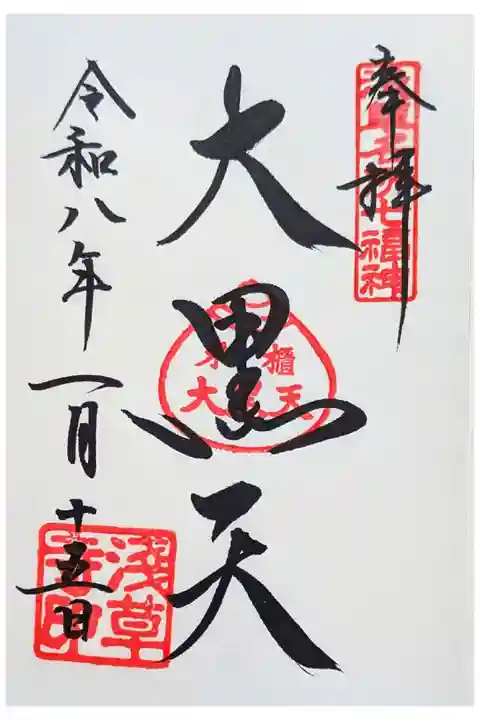 奉拝
七福神
大黒天
櫃
大 天
令和八年一月十五日
浅草